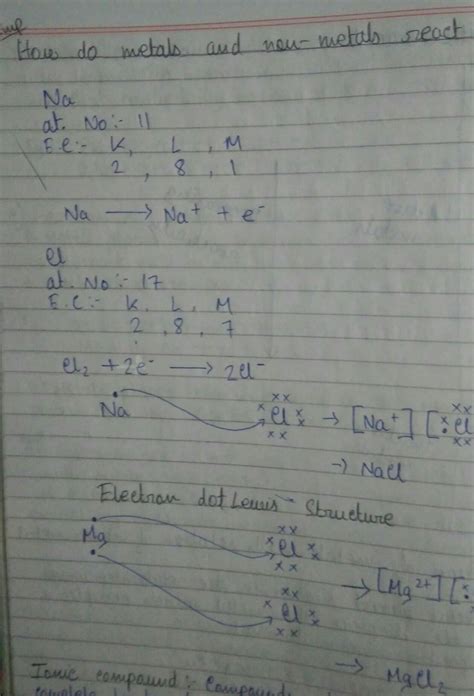 Imp
How do metals and non-metals react
Na
at. No :- 11
E.C :- K, L, M
2, 8, 1
Na → Na⁺ + e⁻
Cl
at. No :- 17
E.C :- K, L, M
2, 8, 7
Cl₂ + 2e⁻ → 2Cl⁻
Na Cl → [Na⁺] [Cl
→ NaCl
Electron dot Lewis - Structure
Mg Cl
→ [Mg²⁺] [
Cl
→ MgCl₂
Ionic compound :- Compound